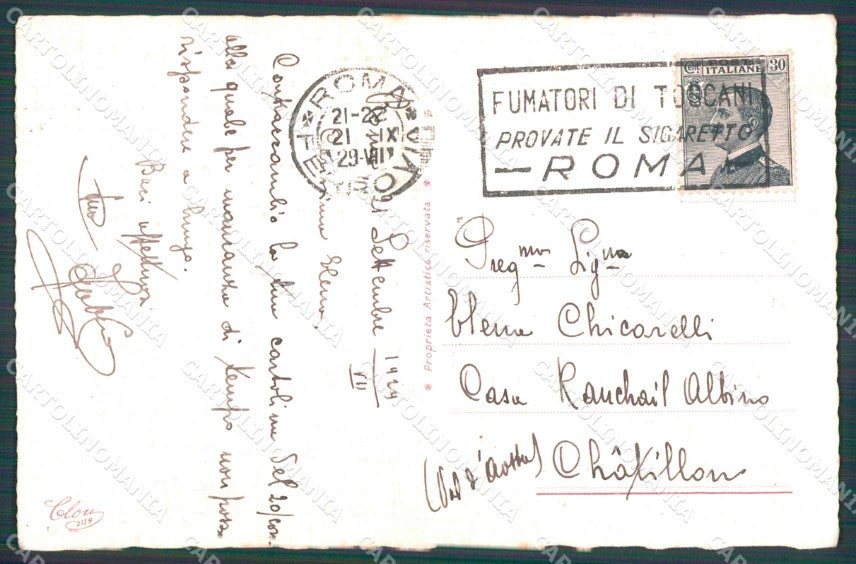 Roma 21 Settembre 1929
VII
Carissima Elena,
Contraccambio la tua cartolina del 20 corr.
alla quale per mancanza di tempo non posso
rispondere a lungo.
Baci affettuosi
tuo
ROMA
21-22
21 IX
29-VII
FERROVIA
FUMATORI DI TOSCANI
PROVATE IL SIGARETTO
- ROMA -
Ct. POSTE 30
ITALIANE
Preg.ma Sig.na
Elena Chicarelli
Casa Ranchail Albino
(Val d'Aosta) Châtillon
® Proprietà Artistica riservata ®
Clon
2178
CARTOLINOMANIA